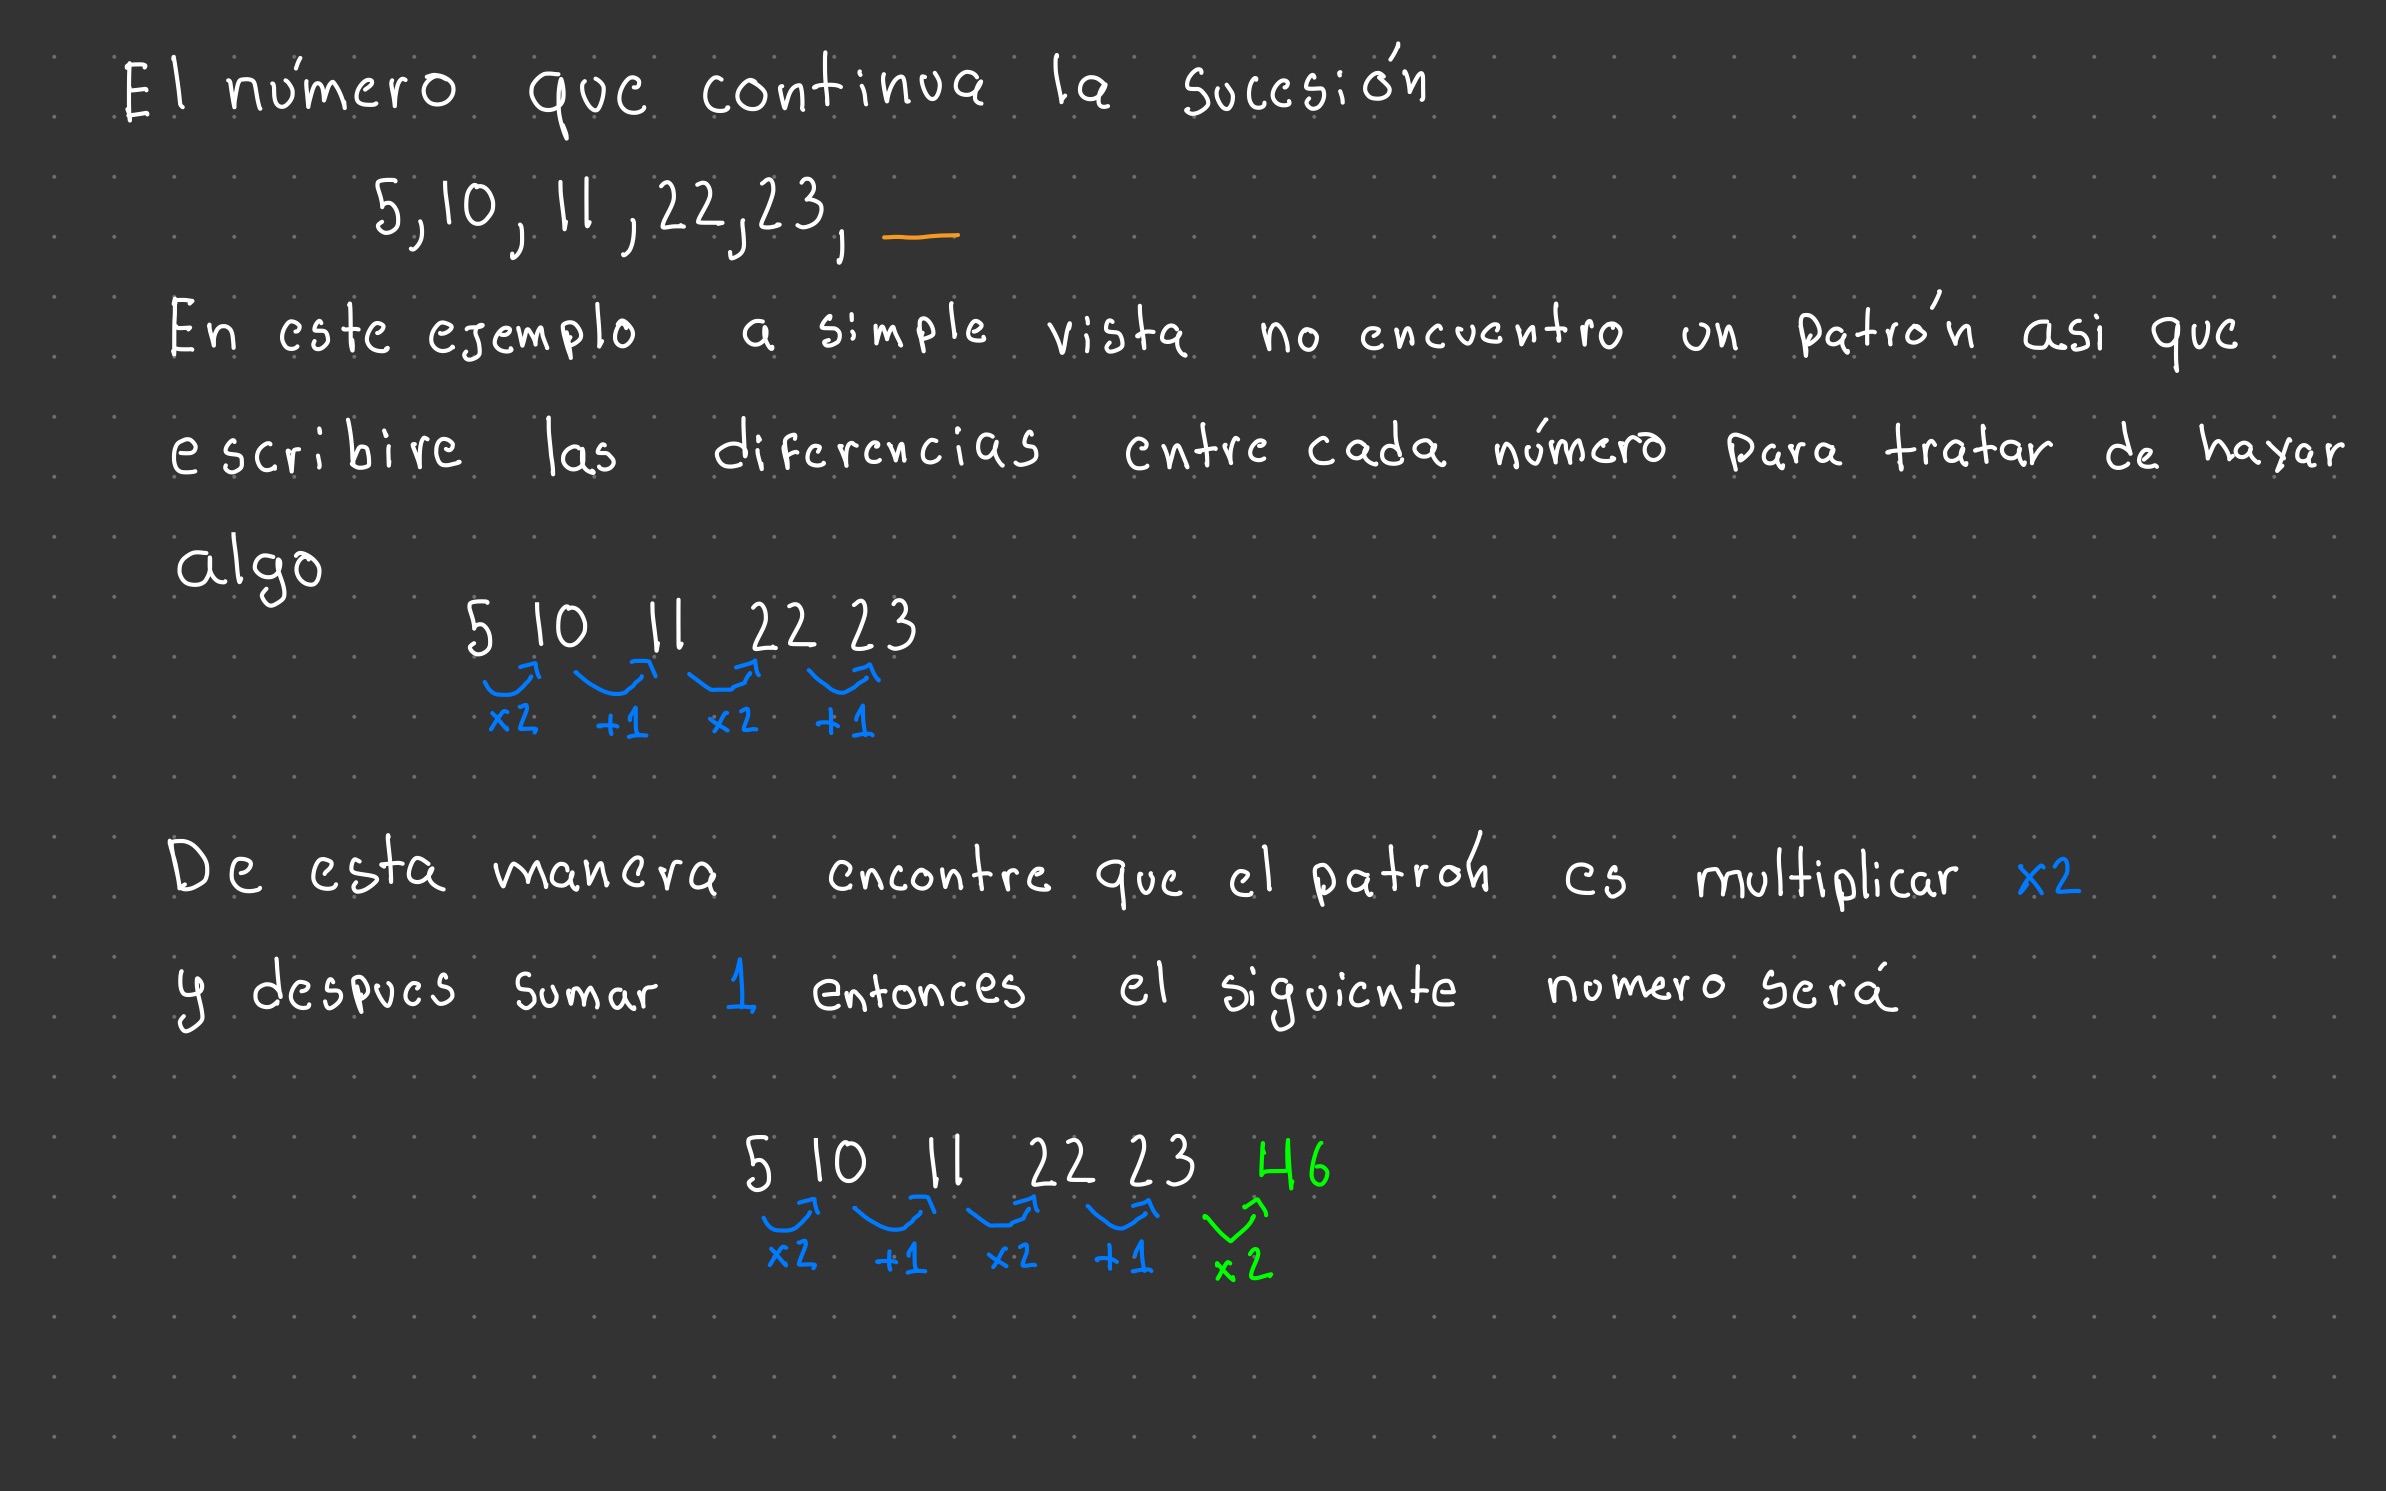 El número que continua la sucesión
5, 10, 11, 22, 23, __
En este ejemplo a simple vista no encuentro un patrón asi que
escribire las diferencias entre cada número para tratar de hayar
algo
5 10 11 22 23
x2 +1 x2 +1
De esta manera encontre que el patrón es multiplicar x2
y despues sumar 1 entonces el siguiente numero será
5 10 11 22 23 46
x2 +1 x2 +1 x2